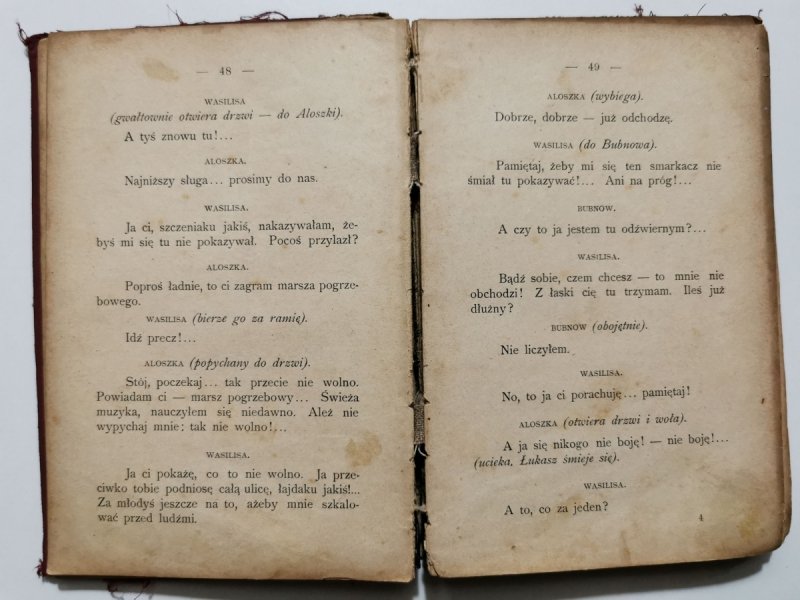 — 48 —
WASILISA
(gwałtownie otwiera drzwi — do Aloszki).
A tyś znowu tu!...
ALOSZKA.
Najniższy sługa... prosimy do nas.
WASILISA.
Ja ci, szczeniaku jakiś, nakazywałam, że-
byś mi się tu nie pokazywał. Pocoś przylazł?
ALOSZKA.
Poproś ładnie, to ci zagram marsza pogrze-
bowego.
WASILISA (bierze go za ramię).
Idź precz!...
ALOSZKA (popychany do drzwi).
Stój, poczekaj... tak przecie nie wolno.
Powiadam ci — marsz pogrzebowy... Świeża
muzyka, nauczyłem się niedawno. Ależ nie
wypychaj mnie: tak nie wolno!...
WASILISA.
Ja ci pokażę, co to nie wolno. Ja prze-
ciwko tobie podniosę całą ulicę, łajdaku jakiś!...
Za młodyś jeszcze na to, ażeby mnie szkalo-
wać przed ludźmi.
— 49 —
ALOSZKA (wybiega).
Dobrze, dobrze — już odchodzę.
WASILISA (do Bubnowa).
Pamiętaj, żeby mi się ten smarkacz nie
śmiał tu pokazywać!... Ani na próg!...
BUBNÓW.
A czy to ja jestem tu odźwiernym?...
WASILISA.
Bądź sobie, czem chcesz — to mnie nie
obchodzi! Z łaski cię tu trzymam. Ileś już
dłużny?
BUBNOW (obojętnie).
Nie liczyłem.
WASILISA.
No, to ja ci porachuję... pamiętaj!
ALOSZKA (otwiera drzwi i woła).
A ja się nikogo nie boję! — nie boję!...
(ucieka, Łukasz śmieje się).
WASILISA.
A to, co za jeden?
4